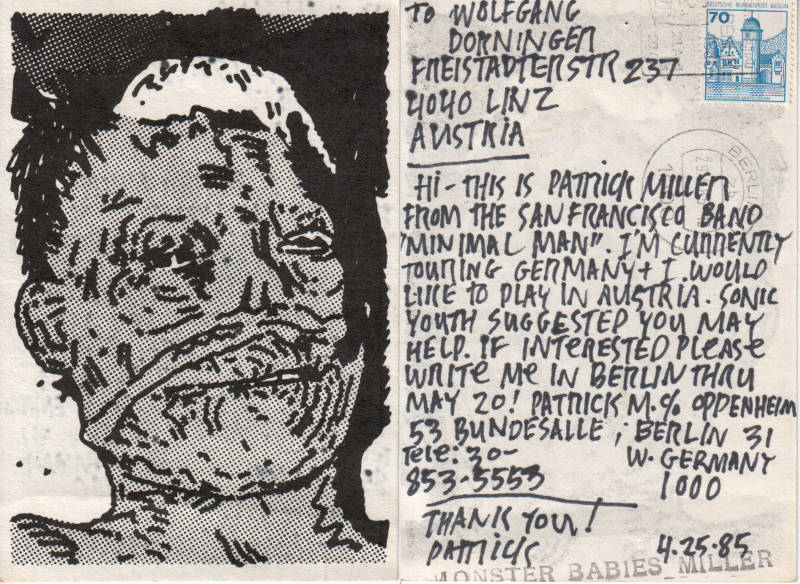 TO WOLFGANG
DORNINGER
FREISTÄDTERSTR 237
4040 LINZ
AUSTRIA
70
DEUTSCHE BUNDESPOST BERLIN
BERLIN
HI - THIS IS PATRICK MILLER
FROM THE SAN FRANCISCO BAND
"MINIMAL MAN". I'M CURRENTLY
TOURING GERMANY + I WOULD
LIKE TO PLAY IN AUSTRIA. SONIC
YOUTH SUGGESTED YOU MAY
HELP. IF INTERESTED PLEASE
WRITE ME IN BERLIN THRU
MAY 20! PATRICK M. % OPPENHEIM
53 BUNDESALLE; BERLIN 31
TELE: 30- W. GERMANY
853-5553 1000
THANK YOU!
PATRICK 4.25.85
MONSTER BABIES_MILLER